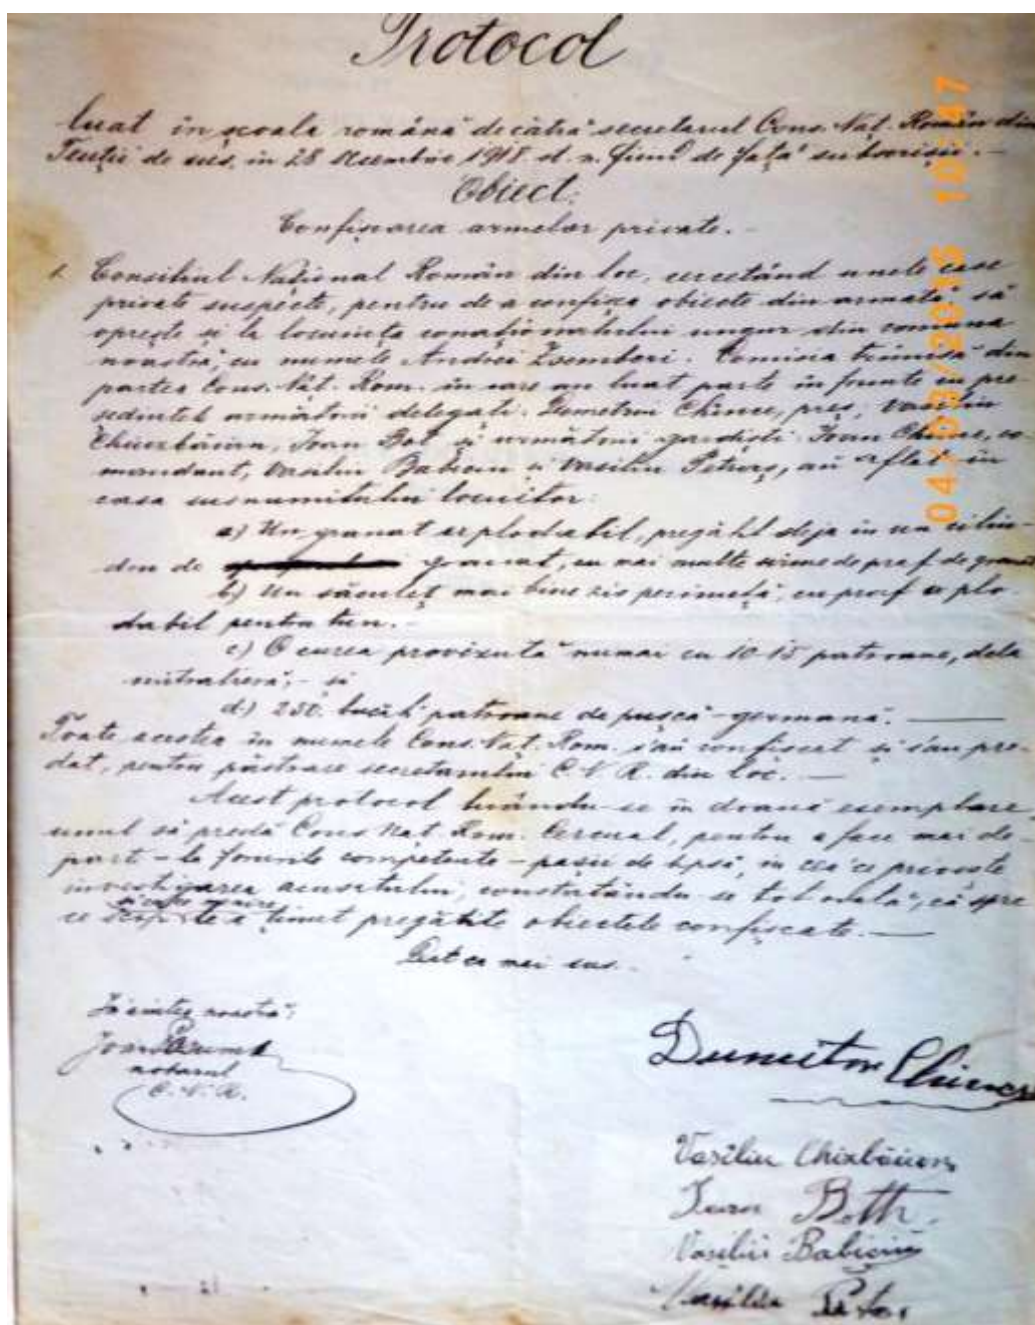 Protocol
luat în școala română de cătră secretarul Cons. Naț. Român din
de sus, in 28 1918 st. n. fiind de față subscrișii. —
Obiect:
Confiscarea armelor private. —
1. Consiliul Național Român din loc, cercetând unele case
private suspecte, pentru de a confisca obiecte din armată, să
oprește și la locuința conaționalului ungur din comuna
noastră, cu numele Andrei Zsembori. Comisia trimisă din
partea Cons. Nat. Rom. in care au luat parte în frunte cu pre-
sedintele următorii delegați: Dumetru Chince, preș, Vasiliu
Ioan Bot și următorii gardiști: Ioan Chince, co-
mandant, Vasiliu Babiciu și Vasiliu au aflat în
casa susnumitului locuitor:
a) Un granat explodabil, pregătit deja in un cilin-
dru de granat, cu mai multe de praf de
b.) Un săculeț mai bine zis cu praf explo-
dabil pentru tun. —
c.) O curea provăzută numai cu 10-15 patroane, dela
mitralieră, - și
d.) 250. bucăți patroane de pușcă - germană. —
Toate acestea in numele Cons. Nat. Rom. s'au confiscat și s'au pre-
dat, pentru păstrare secretarului C. N. R. din loc. —
Acest protocol luându-se in două esemplare
unul să predă Cons. Nat. Rom. Cercual, pentru a face mai de-
part - la forurile competente - pașii de lipsă, in cea ce privește
investigarea acusatului, constatându-se tot odată, că spre
ce scop a ținut pregătite obiectele confiscate. —
Dat ca mai sus.
Înaintea noastră:
Ioan
notarul
C. N. R.
Dumitru Chince
Vasiliu Chixbăican
Ioan Both
Vasiliu Babiciu
Vasiliu
04/03/2035 10:47